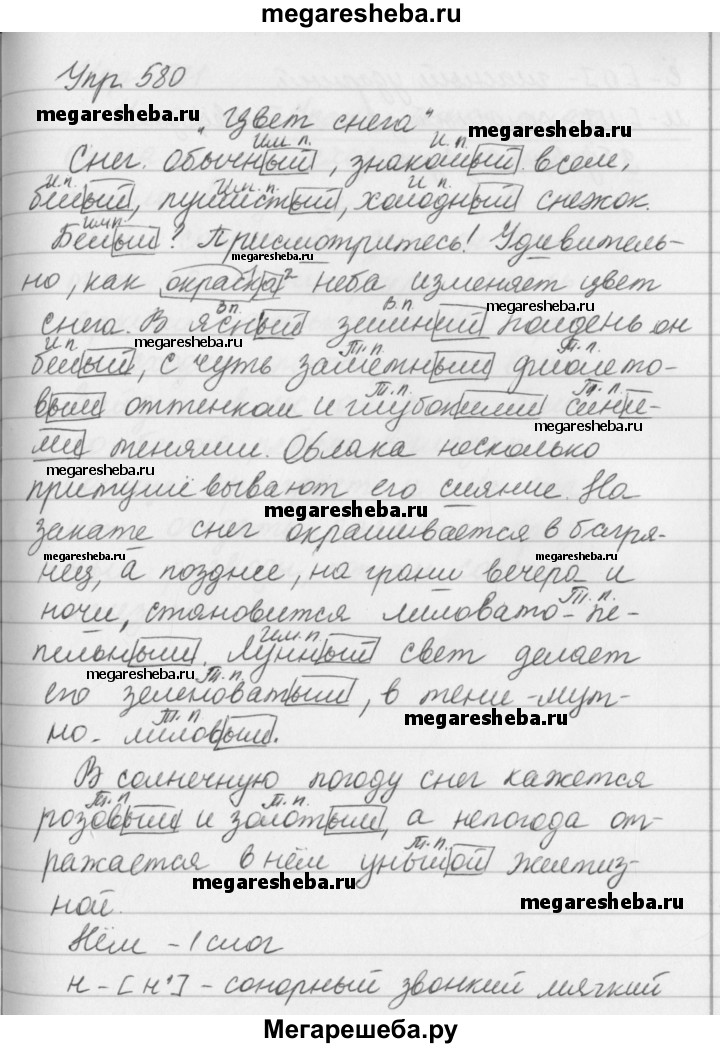 megaresheba.ru
Упр. 580
megaresheba.ru
„Цвет снега"
megaresheba.ru
Им. п. И. п.
Снег. Обычный, знакомый всем,
И. п. Им. п. И. п.
белый, пушистый, холодный снежок.
Им п.
Белый? Присмотритесь! Удивитель-
megaresheba.ru
но, как окраска² неба изменяет цвет
megaresheba.ru
В п. В п.
снега. В ясный зимний полдень он
megaresheba.ru
И. п. Т. п. Т. п.
белый, с чуть заметным фиолето-
Т. п. Т. п.
вым оттенком и глубокими сини-
ми тенями. Облака несколько
megaresheba.ru
megaresheba.ru
притушёвывают его сияние. На
megaresheba.ru
закате снег окрашивается в багря-
megaresheba.ru
megaresheba.ru
нец, а позднее, на грани вечера и
ночи, становится лиловато-пе-
Т. п.
Им. п.
пельным. Лунный свет делает
megaresheba.ru
Т. п.
его зеленоватым, в тени - мут-
megaresheba.ru
Т. п.
но-лиловым.
В солнечную погоду снег кажется
Т. п. Т. п.
розовым и золотым, а непогода от-
Т. п.
ражается в нём унылой желтиз-
megaresheba.ru
megaresheba.ru
ной.
Нём - 1 слог
н - [н'] - сонорный звонкий мягкий
Мегарешеба.ру